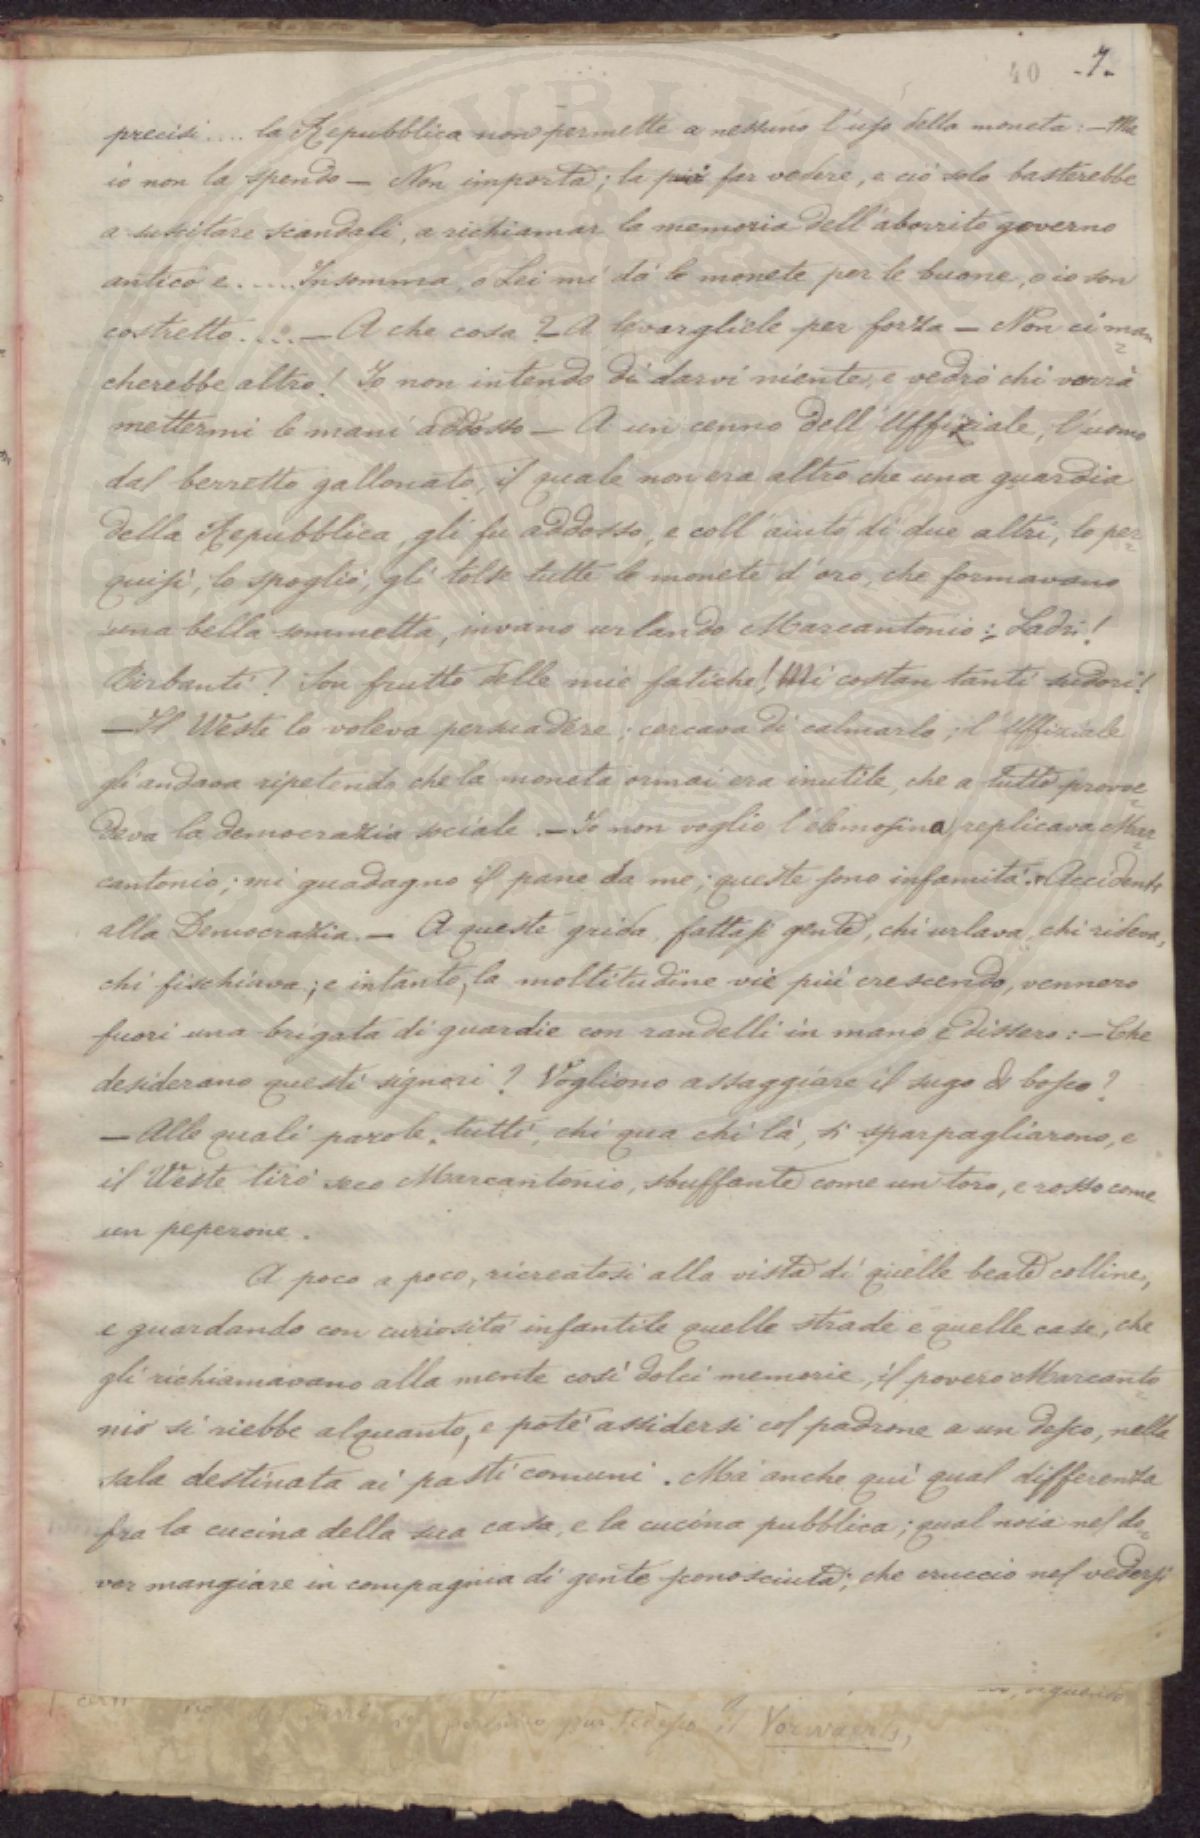 40 -7-
precisi.... la Repubblica non permette a nessuno l'uso della moneta: — Ma
io non la spendo — Non importa; la può far vedere, e ciò solo basterebbe
a suscitare scandali, a richiamar la memoria dell'aborrito governo
antico e..... Insomma, o Lei mi dà le monete per le buone, o io son
costretto.... — A che cosa? — A levargliele per forza — Non ci man
cherebbe altro! Io non intendo di darvi niente, e vedrò chi verrà
mettermi le mani addosso — A un cenno dell'Uffiziale, l'uomo
dal berretto gallonato, il quale non era altro che una guardia
della Repubblica, gli fu addosso, e coll'aiuto di due altri, lo per=
quisì, lo spogliò, gli tolse tutte le monete d'oro, che formavano
una bella sommetta, invano urlando Marcantonio: Ladri!
Birbanti! Son frutto delle mie fatiche! Mi costan tanti sudori!
— Il Weste lo voleva persuadere; cercava di calmarlo; l'Uffiziale
gli andava ripetendo che la moneta ormai era inutile, che a tutto provve=
deva la democrazia sociale. — Io non voglio l'elemosina, replicava Mar=
cantonio; mi guadagno il pane da me; queste sono infamità. Accidenti
alla Democrazia. — A queste grida, fattasi gente, chi urlava, chi rideva,
chi fischiava; e intanto, la moltitudine vie più crescendo, vennero
fuori una brigata di guardie con randelli in mano e dissero: — Che
desiderano questi signori? Vogliono assaggiare il sugo di bosco?
— Alle quali parole, tutti, chi qua chi là, si sparpagliarono, e
il Weste tirò seco Marcantonio, sbuffante come un toro, e rosso come
un peperone.
A poco a poco, ricreatosi alla vista di quelle beate colline,
e guardando con curiosità infantile quelle strade e quelle case, che
gli richiamavano alla mente così dolci memorie, il povero Marcanto
nio si riebbe alquanto, e poté assidersi col padrone a un desco, nella
sala destinata ai pasti comuni. Ma anche qui qual differenza
fra la cucina della sua casa, e la cucina pubblica; qual noia nel do=
ver mangiare in compagnia di gente sconosciuta; che cruccio nel vedersi
Vorwaerts,